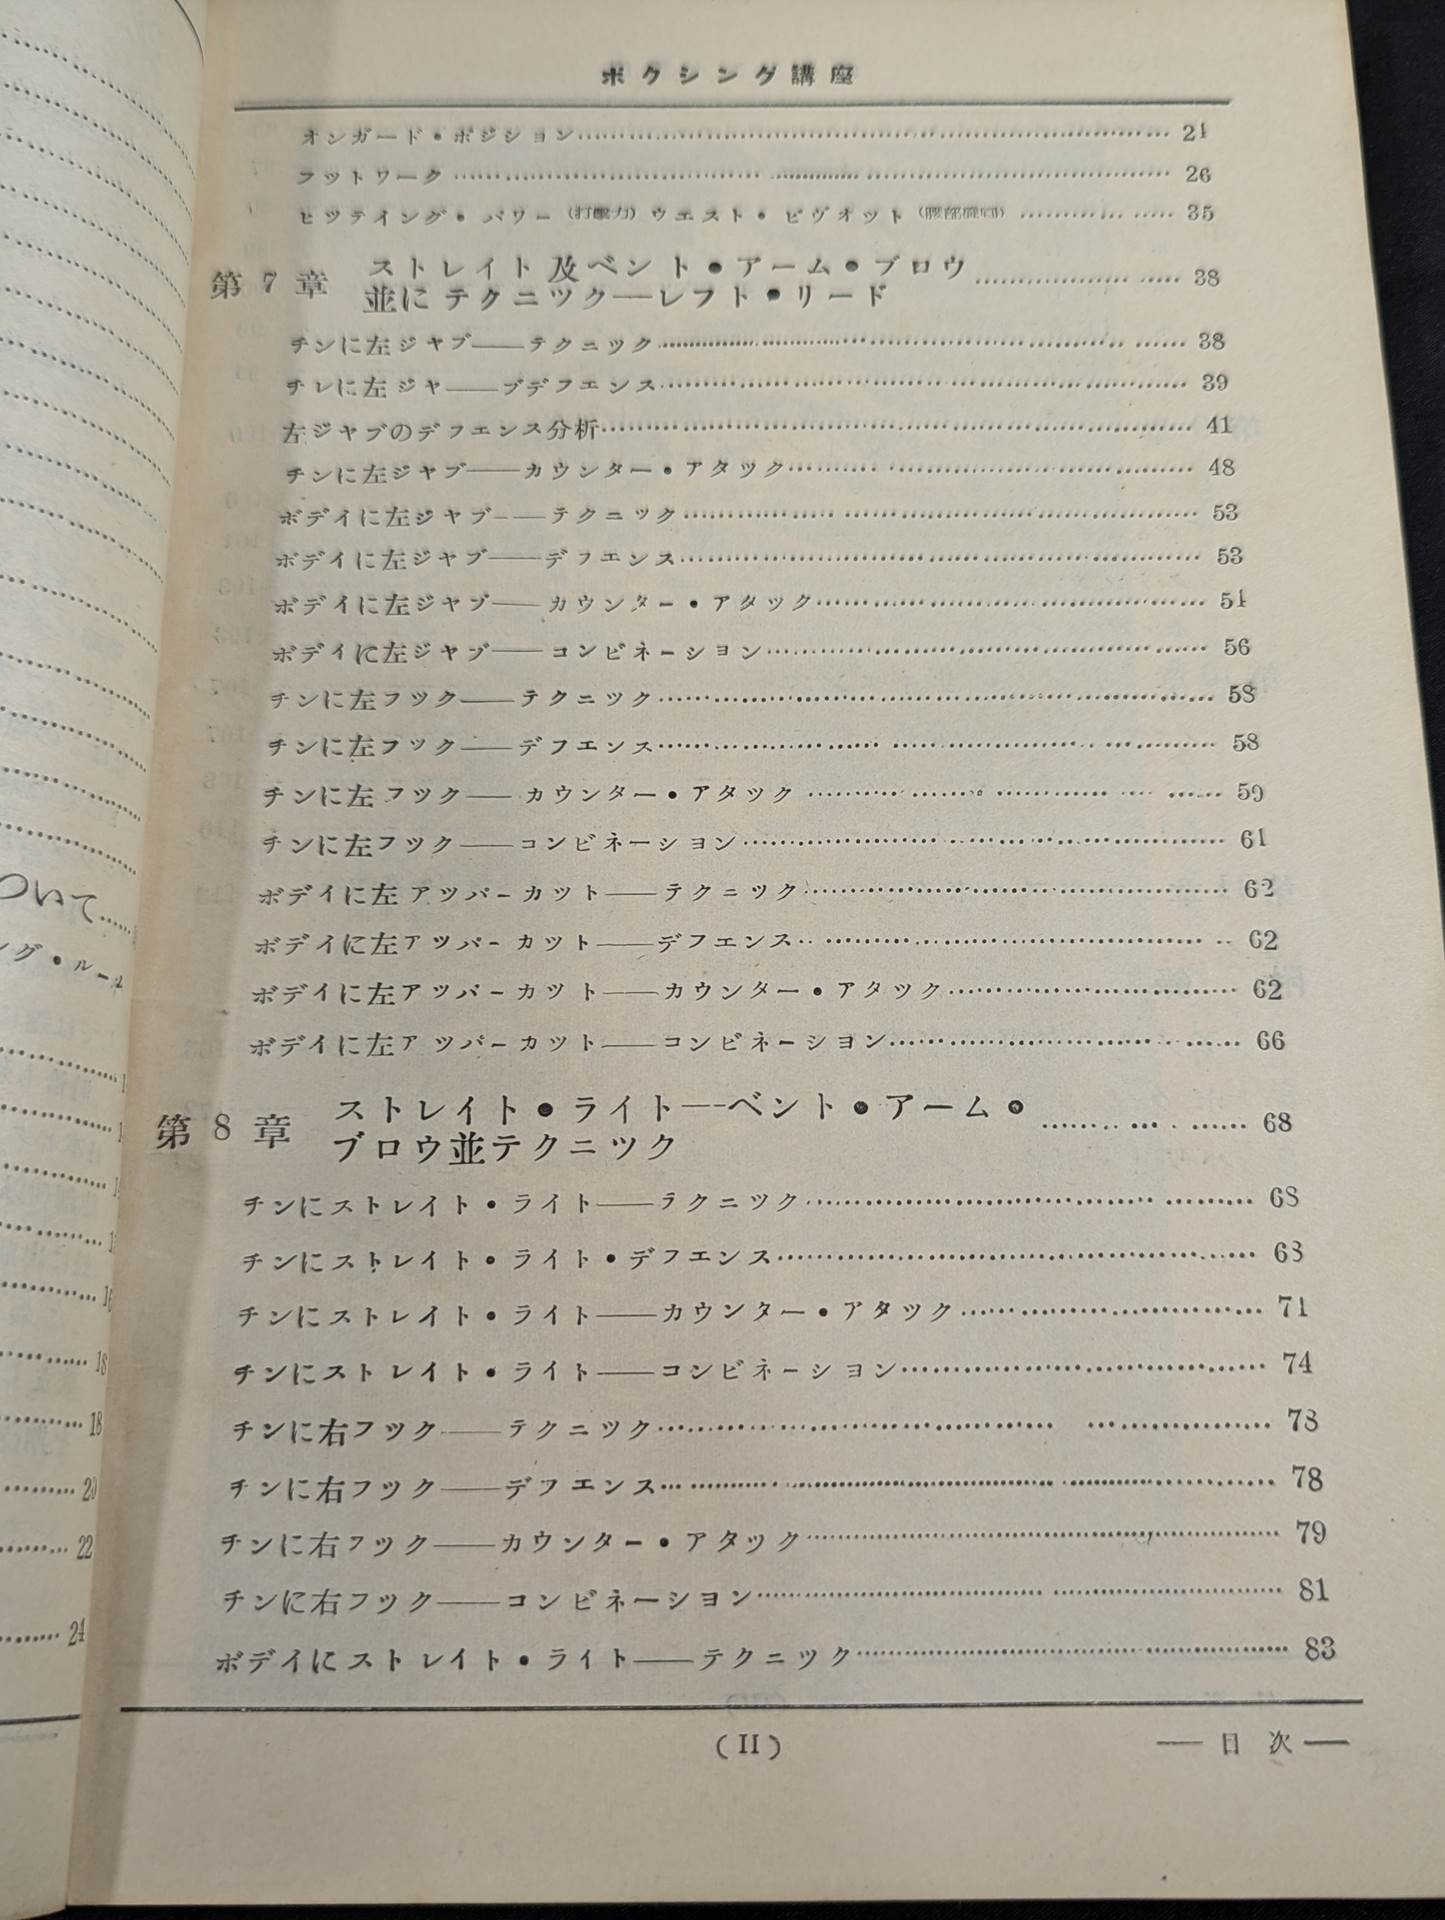 ボクシング講座
オンガード・ポジション……………………………… 24
フットワーク……………………………… 26
ヒツテイング・パワー(打撃力)ウエスト・ピヴオット(腰部旋回)……………… 35
第7章 ストレイト及ベント・アーム・ブロウ
並にテクニツク──レフト・リード……………… 38
チンに左ジヤブ──テクニツク……………………………… 38
チレに左ジヤ──ブデフエンス……………………………… 39
左ジヤブのデフエンス分析……………………………… 41
チンに左ジヤブ──カウンター・アタツク……………………………… 48
ボデイに左ジヤブ──テクニツク……………………………… 53
ボデイに左ジヤブ──デフエンス……………………………… 53
ボデイに左ジヤブ──カウンター・アタツク……………………………… 54
ボデイに左ジヤブ──コンビネーシヨン……………………………… 56
チンに左フツク──テクニツク……………………………… 58
チンに左フツク──デフエンス……………………………… 58
チンに左フツク──カウンター・アタツク……………………………… 59
チンに左フツク──コンビネーシヨン……………………………… 61
ボデイに左アツパーカツト──テクニツク……………………………… 62
ボデイに左アツパーカツト──デフエンス……………………………… 62
ボデイに左アツパーカツト──カウンター・アタツク……………………… 62
ボデイに左アツパーカツト──コンビネーシヨン……………………… 66
第8章 ストレイト・ライト──ベント・アーム・
ブロウ並テクニツク……………… 68
チンにストレイト・ライト──ラクニツク……………………………… 68
チンにストレイト・ライト・デフエンス……………………………… 68
チンにストレイト・ライト──カウンター・アタツク……………………… 71
チンにストレイト・ライト──コンビネーシヨン……………………… 74
チンに右フツク──テクニツク……………………………… 78
チンに右フツク──デフエンス……………………………… 78
チンに右フツク──カウンター・アタツク……………………………… 79
チンに右フツク──コンビネーシヨン……………………………… 81
ボデイにストレイト・ライト──テクニツク……………………………… 83
(II)
── 目次 ──
ついて……
ング・ルール
16
18
18
20
22
24